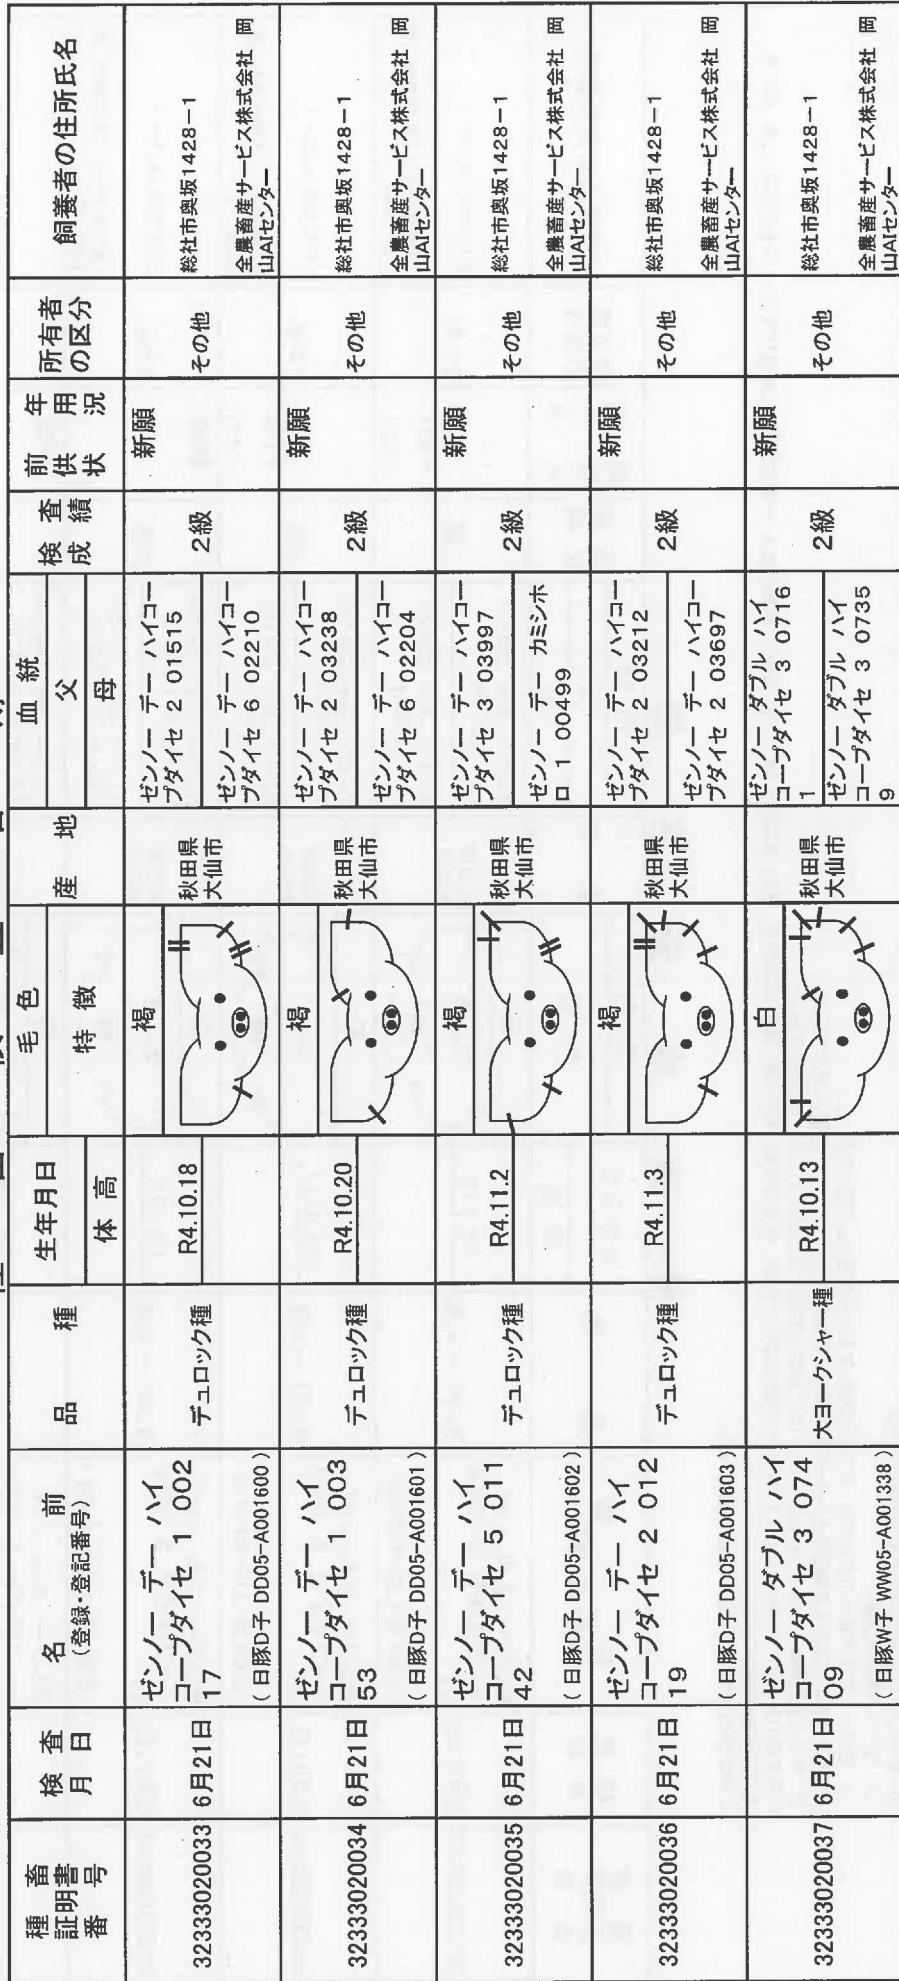 種畜
証明書
番号
検査
月日
名前
(登録・登記番号)
品種
生年月日
体高
毛色
特徴
産地
血統
父
母
検査
成績
前年
供用
状況
所有者
の区分
飼養者の住所氏名
32333020033
6月21日
ゼンノー デー ハイ
コープダイセ 1 002
17
(日豚D子 DD05-A001600)
デュロック種
R4.10.18
褐
秋田県
大仙市
ゼンノー デー ハイコー
プダイセ 2 01515
ゼンノー デー ハイコー
プダイセ 6 02210
2級
新願
その他
総社市奥坂1428-1
全農畜産サービス株式会社 岡
山AIセンター
32333020034
6月21日
ゼンノー デー ハイ
コープダイセ 1 003
53
(日豚D子 DD05-A001601)
デュロック種
R4.10.20
褐
秋田県
大仙市
ゼンノー デー ハイコー
プダイセ 2 03238
ゼンノー デー ハイコー
プダイセ 6 02204
2級
新願
その他
総社市奥坂1428-1
全農畜産サービス株式会社 岡
山AIセンター
32333020035
6月21日
ゼンノー デー ハイ
コープダイセ 5 011
42
(日豚D子 DD05-A001602)
デュロック種
R4.11.2
褐
秋田県
大仙市
ゼンノー デー ハイコー
プダイセ 3 03997
ゼンノー デー カミシホ
ロ 1 00499
2級
新願
その他
総社市奥坂1428-1
全農畜産サービス株式会社 岡
山AIセンター
32333020036
6月21日
ゼンノー デー ハイ
コープダイセ 2 012
19
(日豚D子 DD05-A001603)
デュロック種
R4.11.3
褐
秋田県
大仙市
ゼンノー デー ハイコー
プダイセ 2 03212
ゼンノー デー ハイコー
プダイセ 2 03697
2級
新願
その他
総社市奥坂1428-1
全農畜産サービス株式会社 岡
山AIセンター
32333020037
6月21日
ゼンノー ダブル ハイ
コープダイセ 3 074
09
(日豚W子 WW05-A001338)
大ヨークシャー種
R4.10.13
白
秋田県
大仙市
ゼンノー ダブル ハイ
コープダイセ 3 0716
1
ゼンノー ダブル ハイ
コープダイセ 3 0735
9
2級
新願
その他
総社市奥坂1428-1
全農畜産サービス株式会社 岡
山AIセンター